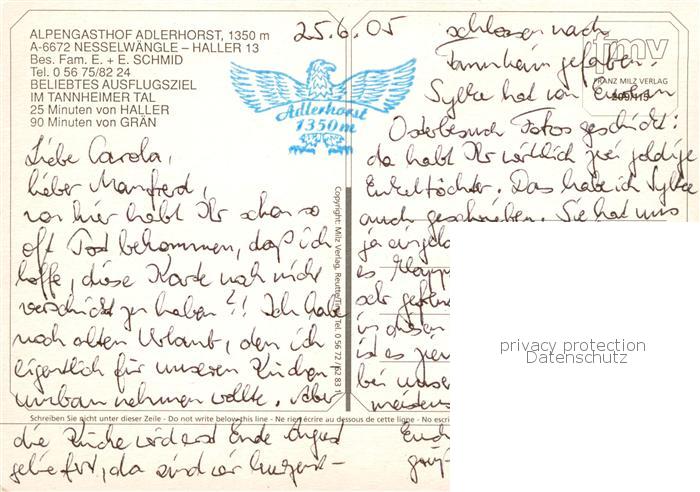 ALPENGASTHOF ADLERHORST, 1350 m
A-6672 NESSELWÄNGLE – HALLER 13
Bes. Fam. E. + E. SCHMID
Tel. 0 56 75/82 24
BELIEBTES AUSFLUGSZIEL
IM TANNHEIMER TAL
25 Minuten von HALLER
90 Minuten von GRÄN
25.6.05
Adlerhorst
1350 m
Liebe Carola,
lieber Manfred,
von hier habt Ihr schon so
oft Post bekommen, daß ich
hoffe, diese Karte noch nicht
verschickt zu haben?! Ich habe
noch alten Urlaub, den ich
eigentlich für unseren Küchen-
umbau nehmen wollte. Aber
Schreiben Sie nicht unter dieser Zeile - Do not write below this line - Ne rien écrire au dessous de cette ligne - No escri
die Küche wird erst Ende August
geliefert, da sind wir kurzent-
Copyright: Milz Verlag, Reutte/Tirol, Tel. 0 56 72 / 62 83 1
schlossen nach
Tannheim gefahren.
fmv
FRANZ MILZ VERLAG
Sylke hat von Eurem
Osterbesuch Fotos geschickt:
da habt Ihr wirklich zwei goldige
Enkeltöchter. Das habe ich Sylke
auch geschrieben. Sie hat uns
ja
es
sehr
in diesen
ist es
bei unser
meistens
privacy protection
Datenschutz